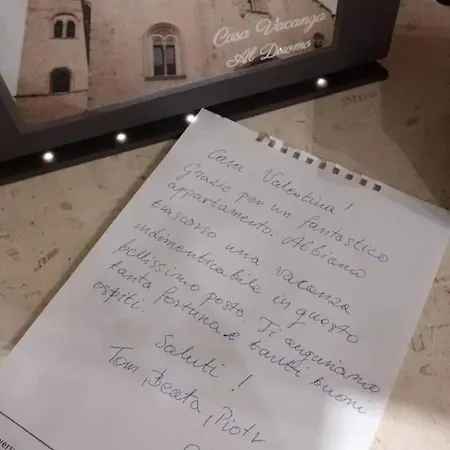 Casa Vacanza
Al Duomo
Cara Valentina!
Grazie per un fantastico
appartamento. Abbiamo
trascorso una vacanza
indimenticabile in questo
bellissimo posto. Ti auguriamo
tanta fortuna e tanti buoni
ospiti.
Saluti!
Tom, Beata, Piotr